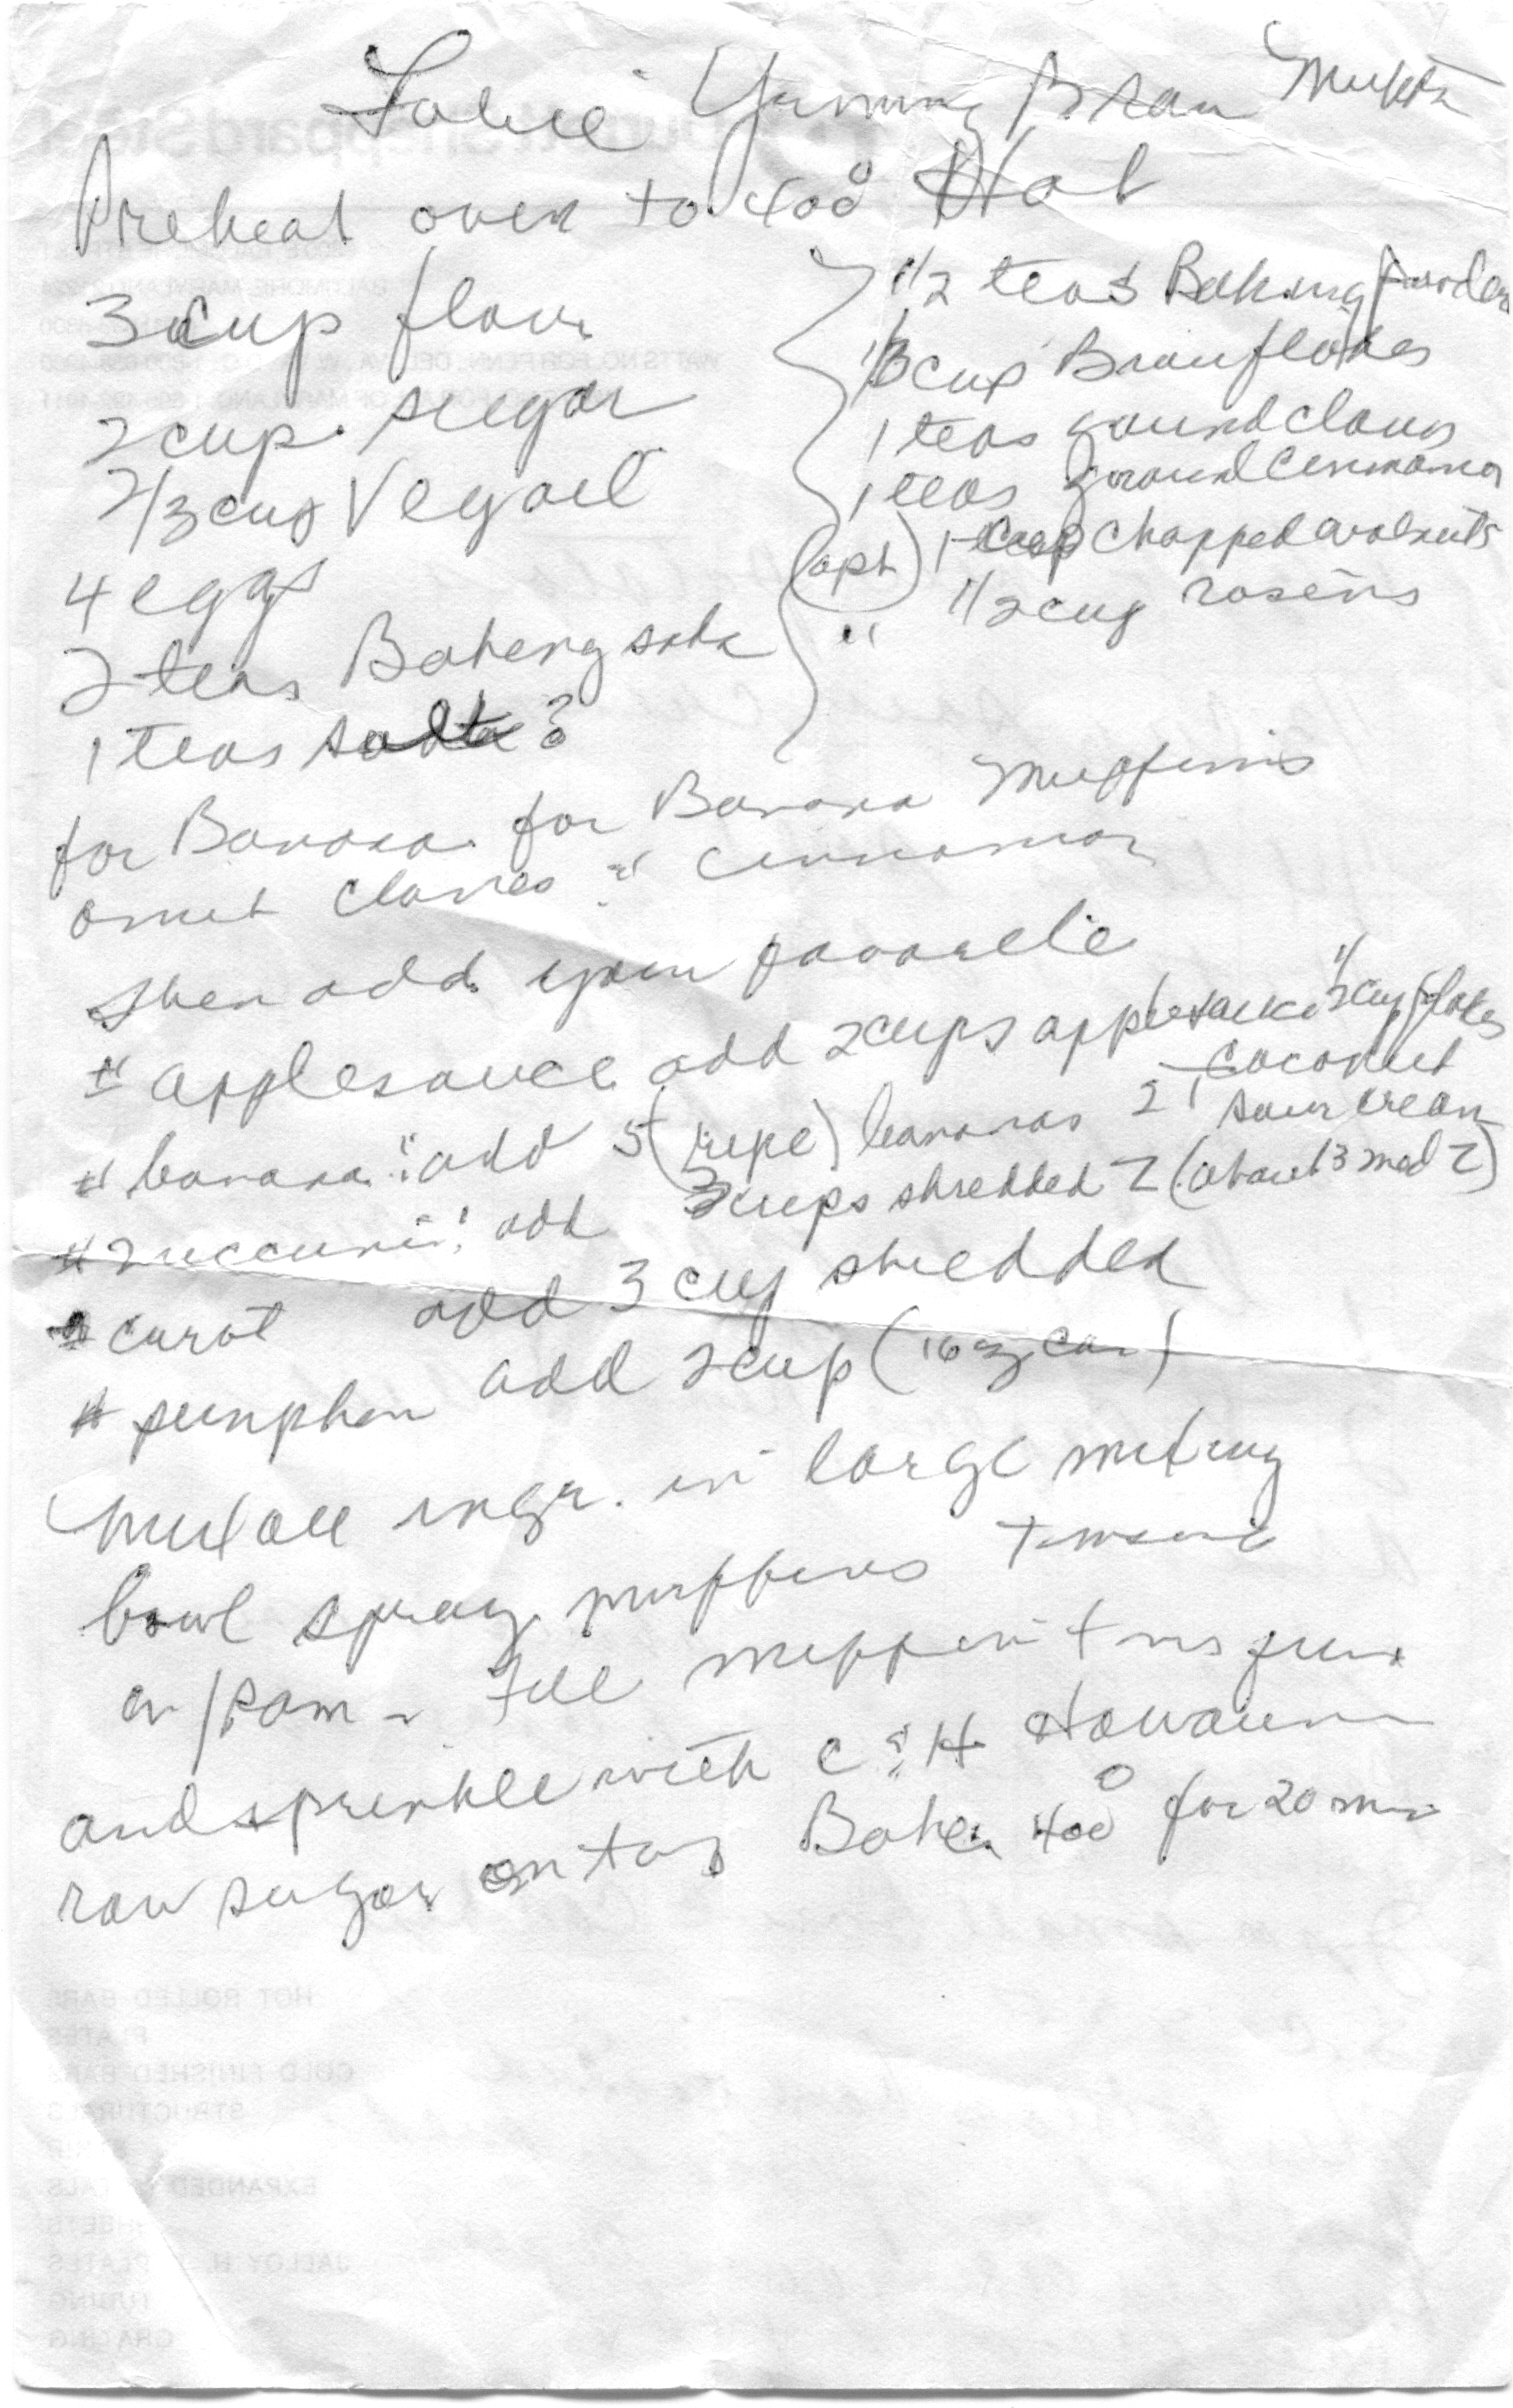 Yummy Bran
Preheat oven to 400° Hot
3 cup flour
2 cup sugar
2/3 cup Veg oil
4 eggs
2 teas Baking soda
1 teas salt
1/2 teas Baking Powder
cup Branflakes
1 teas ground cloves
1 teas ground cinnamon
(opt) 1 cup chopped walnuts
" 1/2 cup rasins
for Banana for Banana muffins
omit cloves & cinnamon
then add your favorite
# applesauce add 2 cups applesauce 1/2 cup flakes
coconut
# banana : add 5 (ripe) bananas 2 T sour cream
# zuccuni : add 3 cups shredded Z (about 3 med Z)
# carot add 3 cup shredded
# pumpkin add 2 cup (16 oz can)
Mix all ingr. in large mixing
bowl spray muffins
w/Pam - Fill muffin tins
and sprinkle with C & H Hawaiian
raw sugar on top Bake 400° for 20 min
HOT ROLLED BARS
PLATES
COLD FINISHED BARS
STRUCTURALS
EXPANDED
SHEETS
PLATES
TUBING
GRATING